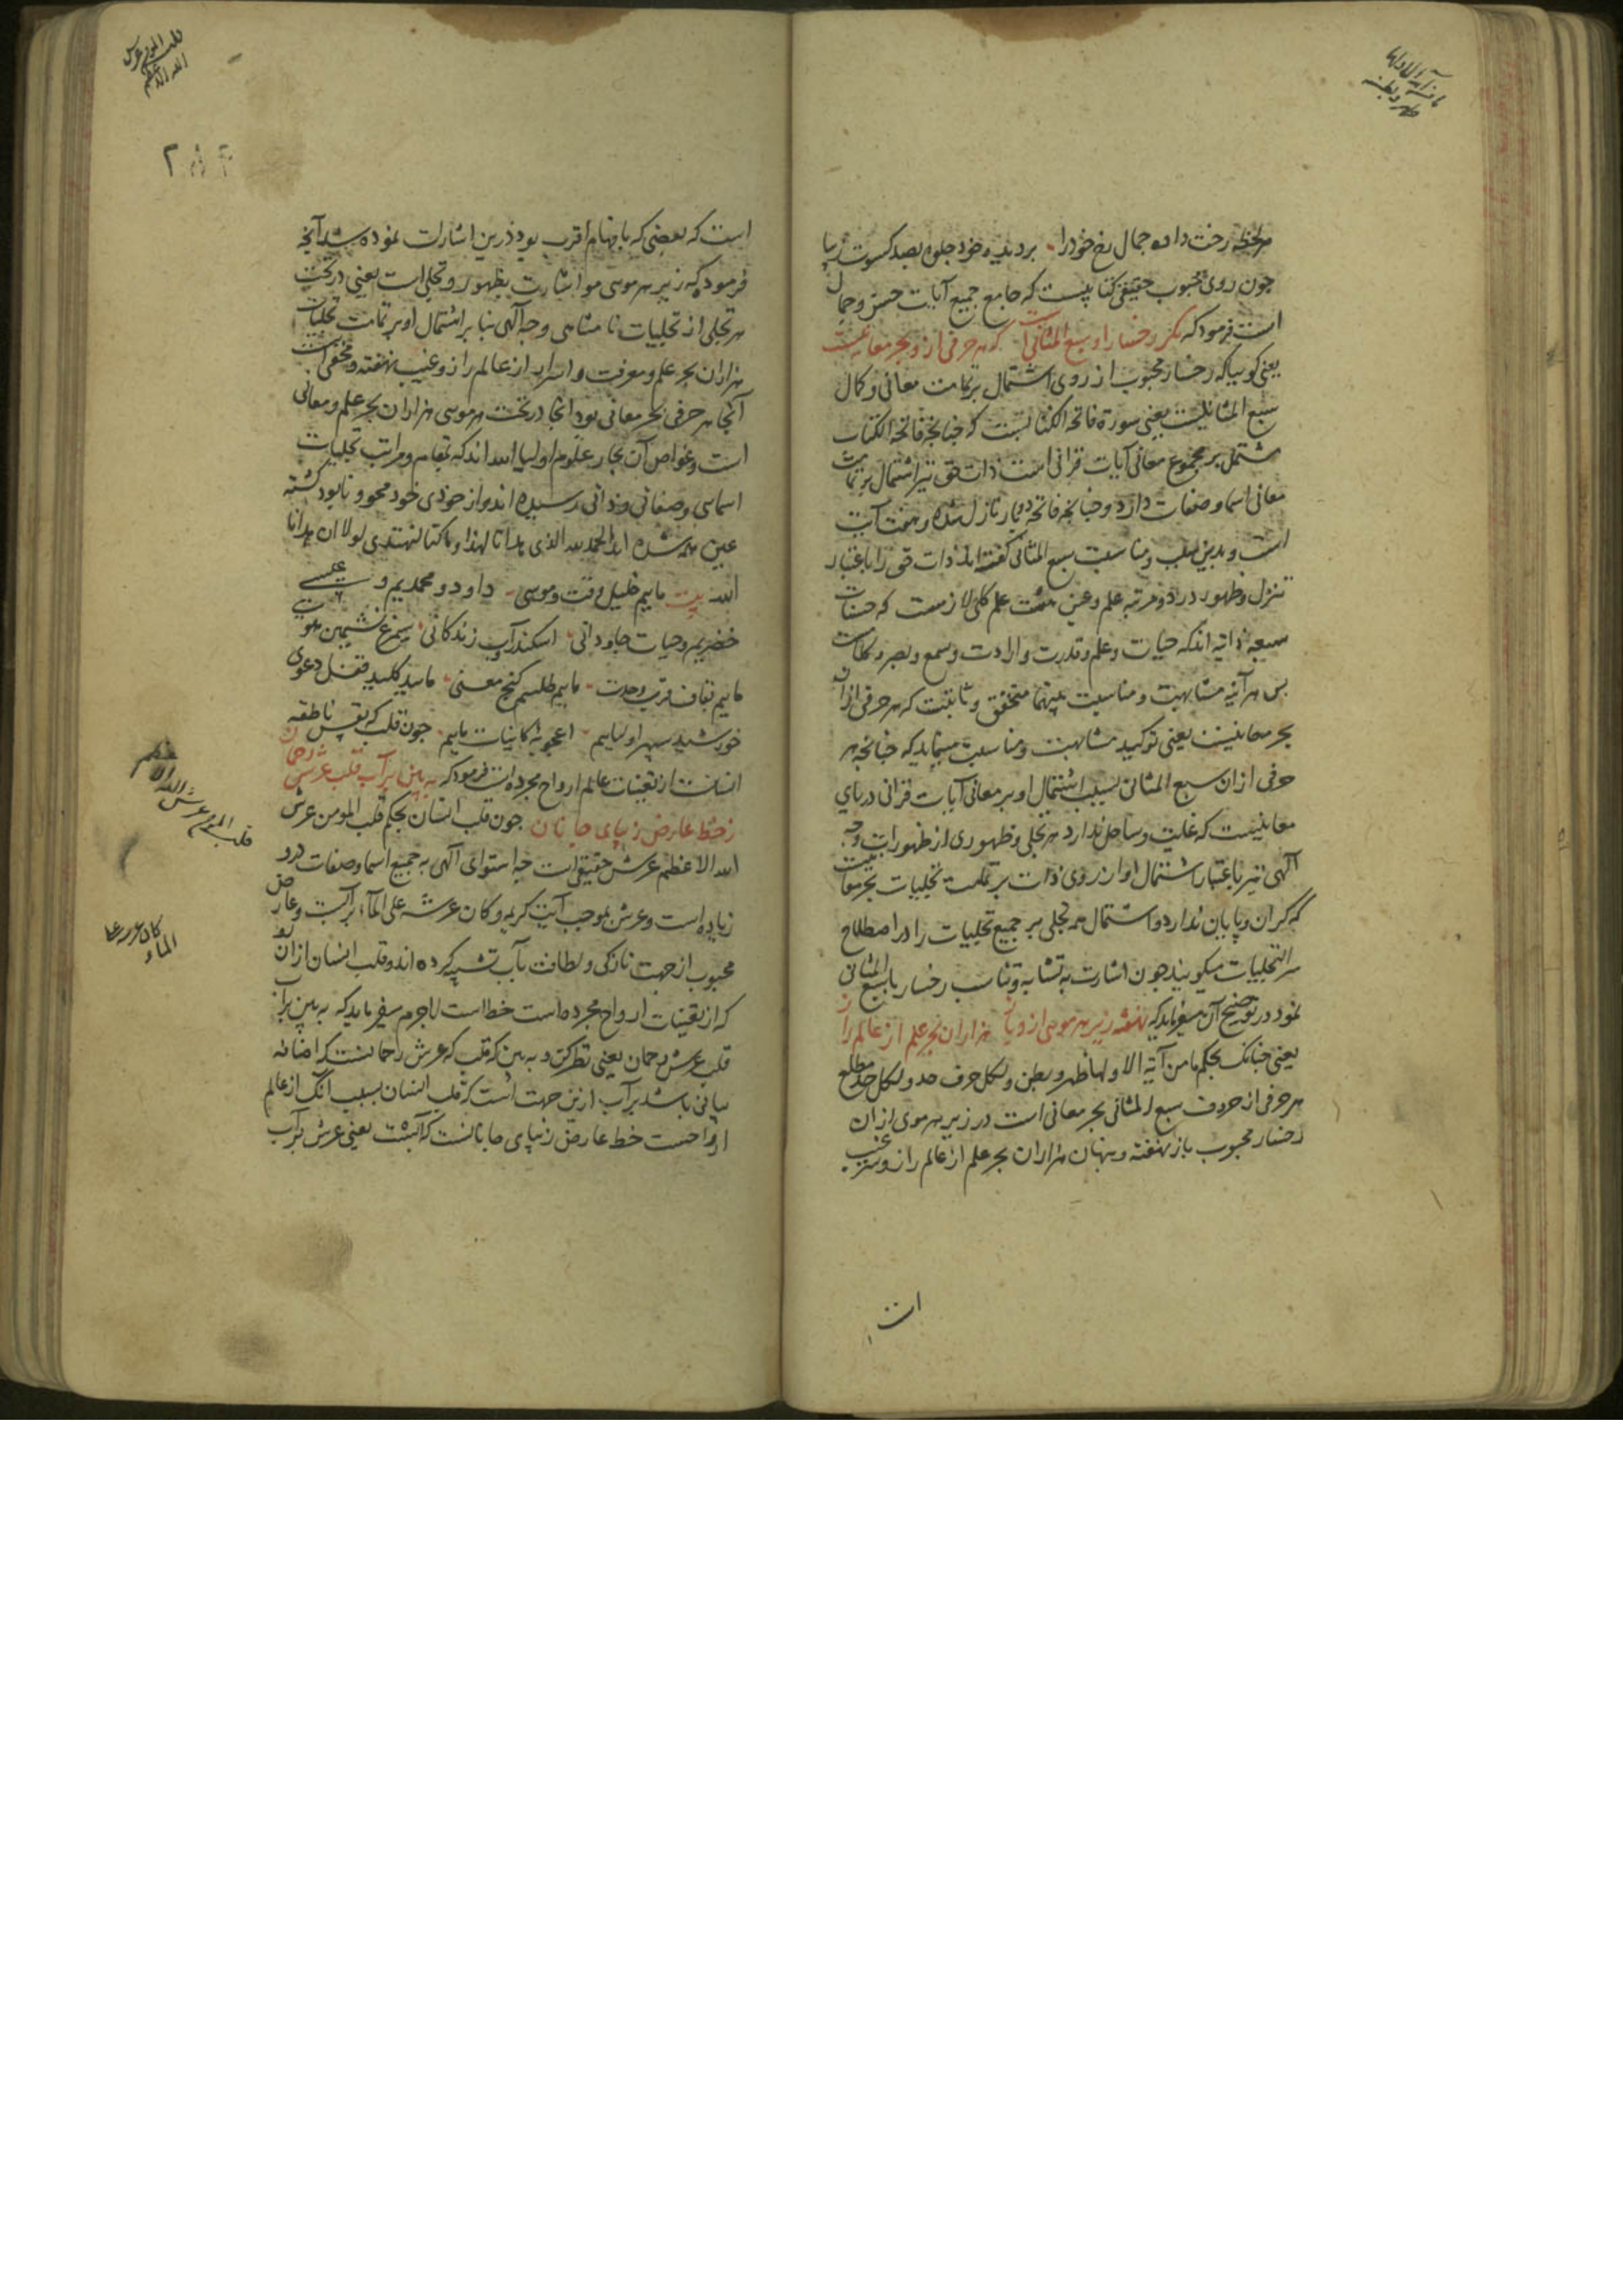 هر لحظه رخت داده جمال رخ خود را بر دیده خود جلوه بصد کسوت زیبا
چون روی محبوب حقیقی کتابیست که جامع جمیع آیات حسن و جمال
است فرمود که مگر رخسار او سبع المثانی است که هر حرفی از و بحر معانیست
یعنی کوییا که رخسار محبوب از روی اشتمال بر تمامت معانی و کمال
سبع المثانیست یعنی سورة فاتحة الکتابست که چنانچه فاتحة الکتاب
مشتمل بر مجموع معانی آیات قرانی است ذات حق نیز اشتمال بر تمامت
معانی اسما و صفات دارد و چنانچه فاتحه دو بار نازل شده و هفت آیت
است و بدین سبب و مناسبت سبع المثانی گفته اند ذات حق را باعتبار
تنزل و ظهور در دو مرتبه علم و عین هفت علم کلی لازمست که صفات
سبعه ذاتیه اند که حیات و علم و قدرت و ارادت و سمع و بصر و کلامست
پس هر آینه مشابهت و مناسبت بینهما متحقق و ثابتست که هر حرفی از ان
بحر معانیست یعنی توکید مشابهت و مناسبت مینماید که چنانچه هر
حرفی ازان سبع المثانی بسبب اشتمال او بر معانی آیات قرانی دریای
معانیست که غایت و ساحل ندارد هر تجلی و ظهوری از ظهورات وجه
آلهی نیز باعتبار اشتمال او از روی ذات بر تمامت تجلیات بحر معانیست
که کران و پایان ندارد و اشتمال همه تجلی بر جمیع تجلیات را در اصطلاح
سر التجلیات میکویند چون اشارت به تشابه و تناسب رخسار با سبع المثانی
نمود در توضیح آن میفرماید که نهفته زیر هر موی از و باز هزاران بحر علم از عالم راز
یعنی چنانک بحکم ما من آیة الا ولها ظهر و بطن ولکل حرف حد ولکل حد مطلع
هر حرفی از حروف سبع المثانی بحر معانی است در زیر هر موی از ان
رخسار محبوب باز نهفته و پنهان هزاران بحر علم از عالم راز و غیب
است
است که بعضی که بافهام اقرب بود درین اشارت نموده شد آنچه
فرموده که زیر هر موی مو اشارت بظهور و تجلی است یعنی در تحت
هر تجلی از تجلیات نا متناهی وجه آلهی بنا بر اشتمال او بر تمامت تجلیات
هزاران بحر علم و معرفت و اسرار از عالم راز و غیب نهفته و مخفی است
آنجا هر حرفی بحر معانی بود اینجا در تحت هر موی هزاران بحر علم و معانی
است و غواص آن بحار علوم اولیا الله اند که بمقام و مراتب تجلیات
اسمایی و صفاتی و ذاتی رسیده اند و از خودی خود محو و نابود کشته
عین همه شده اند الحمد لله الذی هدانا لهذا وما کنا لنهتدی لولا ان هدانا
الله بیت ماییم خلیل وقت و موسی داود و محمدیم و عیسی
خضریم و حیات جاودانی اسکندر آب زندکانی سیمرغ نشیمن هویت
ماییم بقاف قرب وحدت ماییم طلسم کنج معنی ماییم کلید قفل دعوی
خورشید سپهر اولیاییم اعجوبه کاینات ماییم چون قلب که نفس ناطقه
انسانست از تعینات عالم ارواح مجرده است فرمود که به بین بر آب قلب عرش رحمان
ز خط عارض زیبای جانان چون قلب انسان بحکم قلب المومن عرش
الله الاعظم عرش حقیقی است چه استوای آلهی به جمیع اسما و صفات درو
زیاده است و عرش بموجب آیت کریمه و کان عرشه علی المآء بر آبست و عارض
محبوب از جهت نازکی و لطافت بآب تشبیه کرده اند و قلب انسان از ان رو
که از تعینات ارواح مجرده است خط است لاجرم میفرماید که به بین بر آب
قلب عرش رحمان یعنی نظر کن و به بین که قلب که عرش رحمانست که اضافه
بیانی باشد بر آب ازین جهت است که قلب انسان بسبب آنک از عالم
ارواحست خط عارض زیبای جانانست که آبست یعنی عرش بر آب
قلب المومن عرش الله الاعظم
قلب المومن عرش الله الاعظم
کان عرشه علی الماء